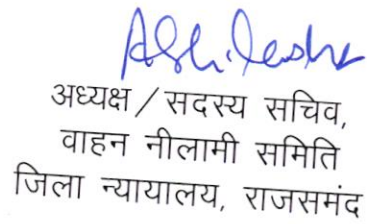 अध्यक्ष / सदस्य सचिव,
वाहन नीलामी समिति
जिला न्यायालय, राजसमंद